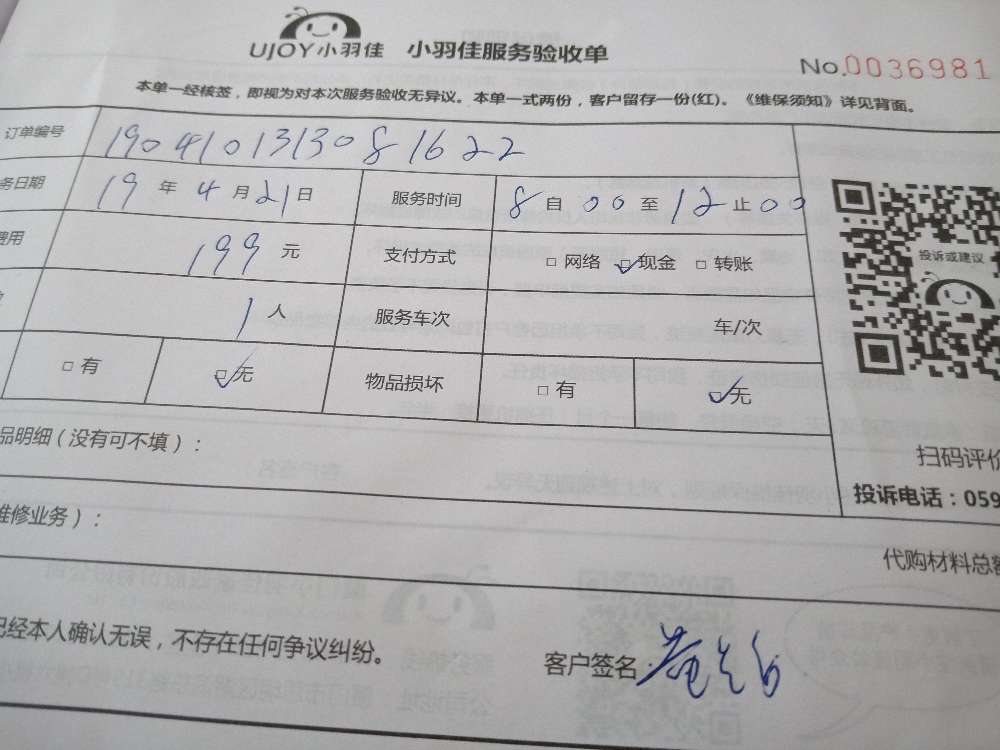 UJOY小羽佳 小羽佳服务验收单
No.0036981
本单一经核签，即视为对本次服务验收无异议。本单一式两份，客户留存一份(红)。《维保须知》详见背面。
订单编号 1904101313081622
务日期 19 年 4 月 21 日 服务时间 8 自 00 至 12 止 00
费用 199 元 支付方式 □ 网络 ☑ 现金 □ 转账
1 人 服务车次 车/次
□ 有 ☑ 无 物品损坏 □ 有 ☑ 无
投诉或建议
扫码评价
品明细（没有可不填）：
投诉电话：059
维修业务）：
代购材料总额
已经本人确认无误，不存在任何争议纠纷。
客户签名